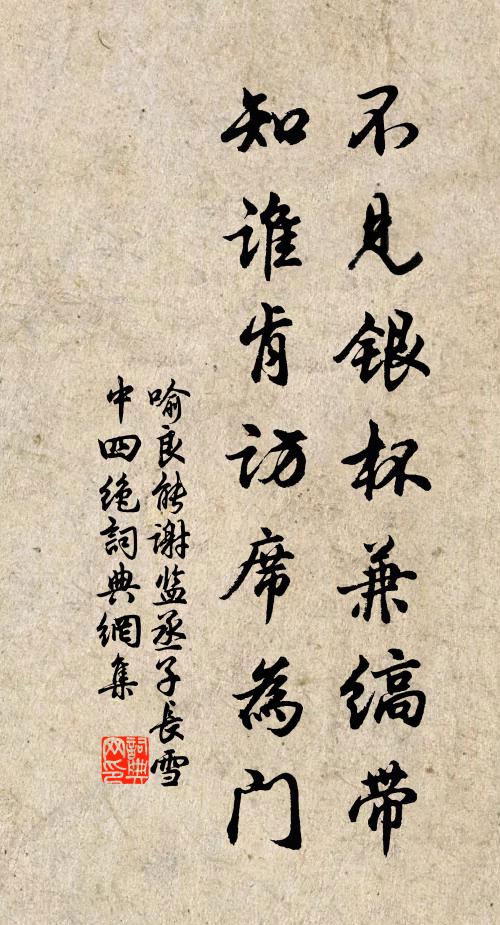 不见银杯兼缟带
知谁肯访席为门
喻良能谢监丞子长雪
中四绝詞典網集
詞典网印